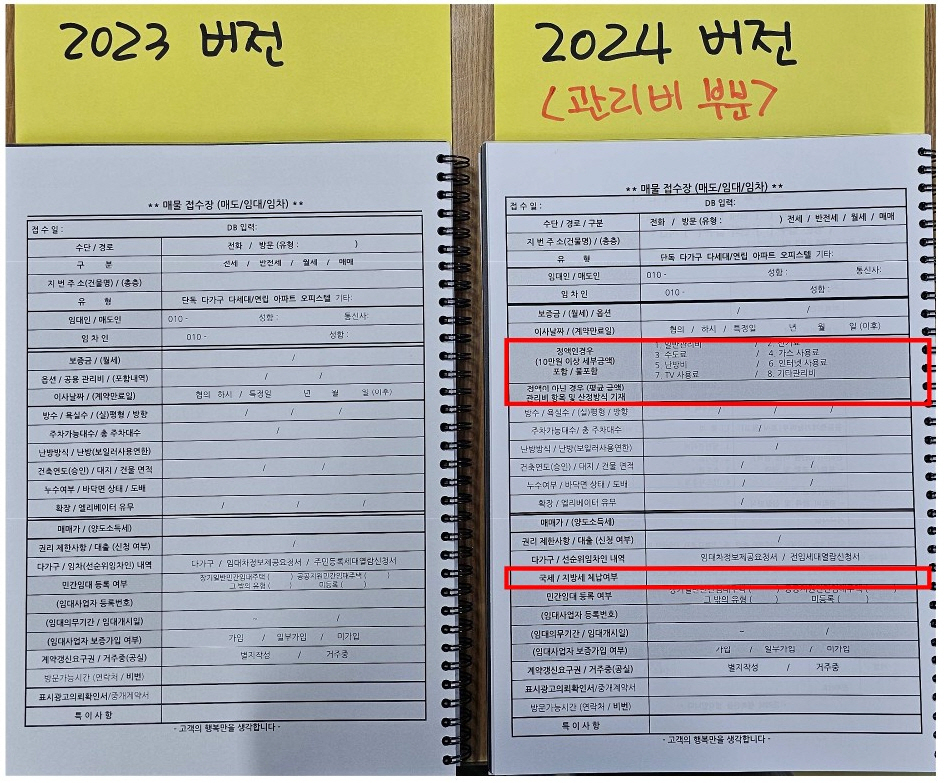 2023 버전
** 매물 접수장 (매도/임대/임차) **
접 수 일 : DB 입력:
수단 / 경로 전화 / 방문 (유형 : )
구 분 전세 / 반전세 / 월세 / 매매
지 번 주 소(건물명) / (총층)
유 형 단독 다가구 다세대/연립 아파트 오피스텔 기타:
임대인 / 매도인 010 - 성함 : 통신사:
임 차 인 010 - 성함 :
보증금 / (월세) /
옵션 / 공용 관리비 / (포함내역)
이사날짜 / (계약만료일) 협의 / 하시 / 특정일 년 월 일 (이후)
방수 / 욕실수 / (실)평형 / 방향 / / /
주차가능대수/ 총 주차대수 /
난방방식 / 난방(보일러사용연한)
건축연도(승인) / 대지 / 건물 면적 / /
누수여부 / 바닥면 상태 / 도배
확장 / 엘리베이터 유무 / / / /
매매가 / (양도소득세)
권리 제한사항 / 대출 (신청 여부) /
다가구 / 임차(선순위임차인) 내역 다가구 / 임대차정보제공요청서 / 주민등록세대열람신청서
민간임대 등록 여부 장기일반민간임대주택 ( ) 공공지원민간임대주택 ( )
그 밖의 유형 ( ) 미등록 ( )
(임대사업자 등록번호)
(임대의무기간 / 임대개시일) ~ /
(임대사업자 보증가입 여부) 가입 / 일부가입 / 미가입
계약갱신요구권 / 거주중(공실) 별지작성 / 거주중
방문가능시간 (연락처 / 비번)
표시광고의뢰확인서/중개계약서
특 이 사 항
- 고객의 행복만을 생각합니다 -
2024 버전
<관리비 부분>
** 매물 접수장 (매도/임대/임차) **
접 수 일 : DB 입력:
수단 / 경로 / 구분 전화 / 방문 (유형 : ) 전세 / 반전세 / 월세 / 매매
지 번 주 소(건물명) / (총층)
유 형 단독 다가구 다세대/연립 아파트 오피스텔 기타:
임대인 / 매도인 010 - 성함 : 통신사:
임 차 인 010 - 성함 :
보증금 / (월세) / 옵션 / /
이사날짜 / (계약만료일) 협의 / 하시 / 특정일 년 월 일 (이후)
정액인경우
(10만원 이상 세부금액)
포함 / 불포함
1. 일반관리비 / 2. 전기료
3. 수도료 / 4. 가스 사용료
5. 난방비 / 6. 인터넷 사용료
7. TV 사용료 / 8. 기타관리비
정액이 아닌 경우 (평균 금액)
관리비 항목 및 산정방식 기재
방수 / 욕실수 / (실)평형 / 방향 / / /
주차가능대수/ 총 주차대수 /
난방방식 / 난방(보일러사용연한)
건축연도(승인) / 대지 / 건물 면적 / /
누수여부 / 바닥면 상태 / 도배 / /
확장 / 엘리베이터 유무 /
매매가 / (양도소득세)
권리 제한사항 / 대출 (신청 여부) /
다가구 / 선순위임차인 내역 임대차정보제공요청서 / 전입세대열람신청서
국세 / 지방세 체납여부
민간임대 등록 여부 그 밖의 유형 ( ) 미등록 ( )
(임대사업자 등록번호)
(임대의무기간 / 임대개시일) ~ /
(임대사업자 보증가입 여부) 가입 / 일부가입 / 미가입
계약갱신요구권 / 거주중(공실) 별지작성 / 거주중
표시광고의뢰확인서/중개계약서
방문가능시간 (연락처 / 비번)
특 이 사 항
- 고객의 행복만을 생각합니다 -